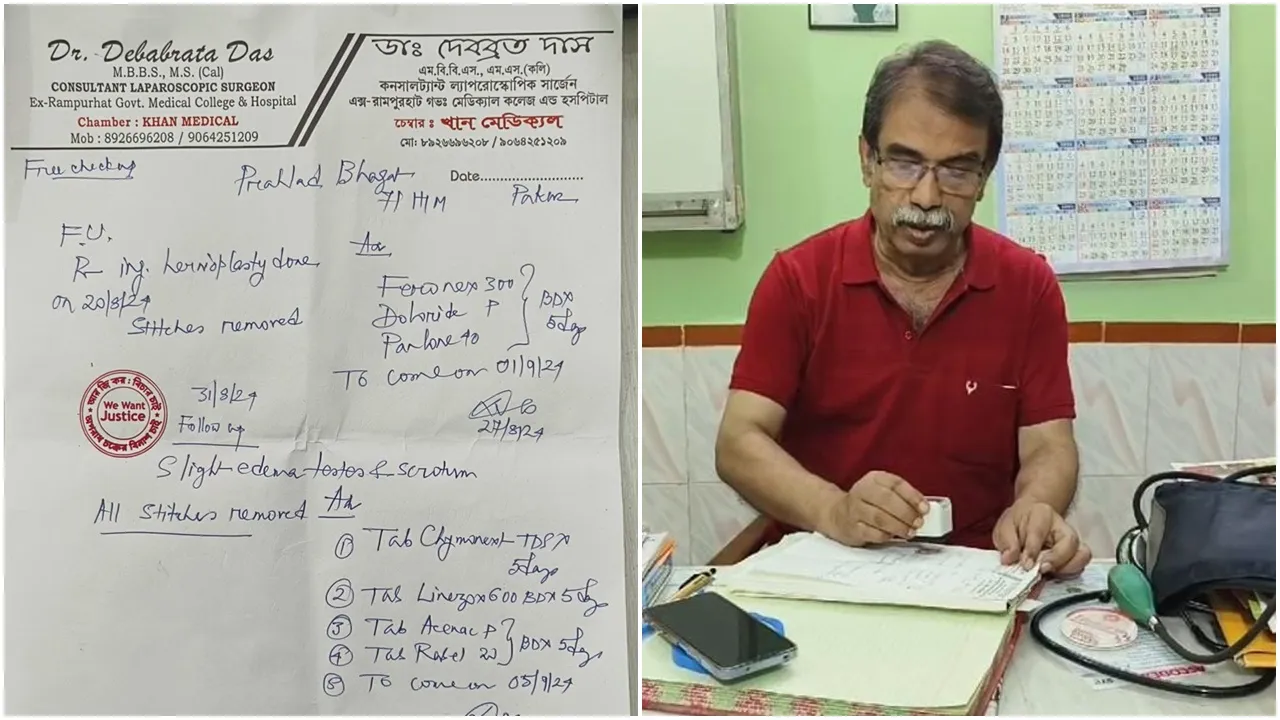 Dr. Debabrata Das
M.B.B.S., M.S. (Cal)
CONSULTANT LAPAROSCOPIC SURGEON
Ex-Rampurhat Govt. Medical College & Hospital
Chamber : KHAN MEDICAL
Mob : 8926696208 / 9064251209
ডাঃ দেবব্রত দাস
এম.বি.বি.এস., এম.এস.(কলি)
কনসালট্যান্ট ল্যাপরোস্কোপিক সার্জেন
এক্স-রামপুরহাট গভঃ মেডিক্যাল কলেজ এন্ড হসপিটাল
চেম্বার : খান মেডিক্যাল
মো: ৮৯২৬৬৯৬২০৮ / ৯০৬৪২৫১২০৯
Free checkup
Date
F.U.
R ing. hernioplasty done
on 20/8/24
Stitches removed
BD x
5 days
To come on 01/9/24
27/8/24
আর জি কর : বিচার চাই
We Want
Justice
31/8/24
Follow up
Slight edema testes & scrotum
All Stitches removed
1 Tab TDS x
5 days
2 Tab 600 BD x 5 days
3 Tab Acenac P
4 Tab 20
BD x 5 days
5 To come on 05/9/24